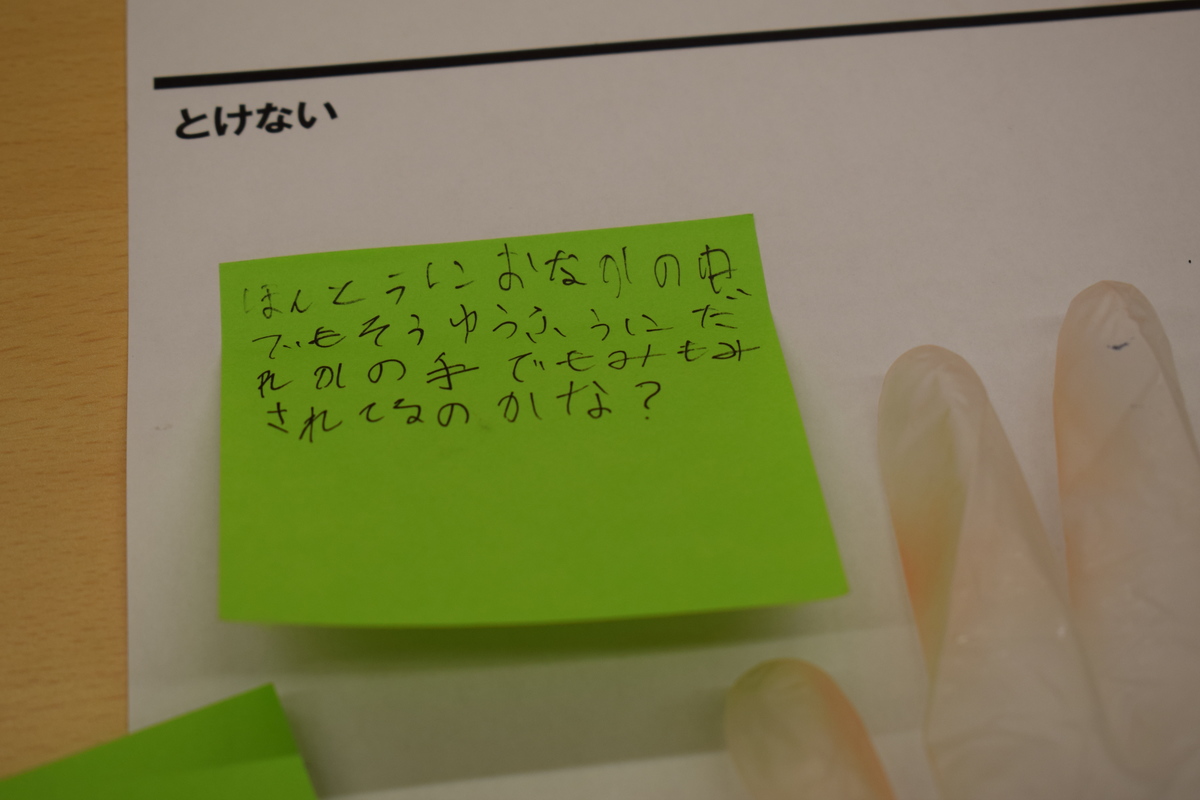 とけない
ほんとうにおなかの中
でもそうゆうふうにだ
れかの手でもみもみ
されてるのかな?